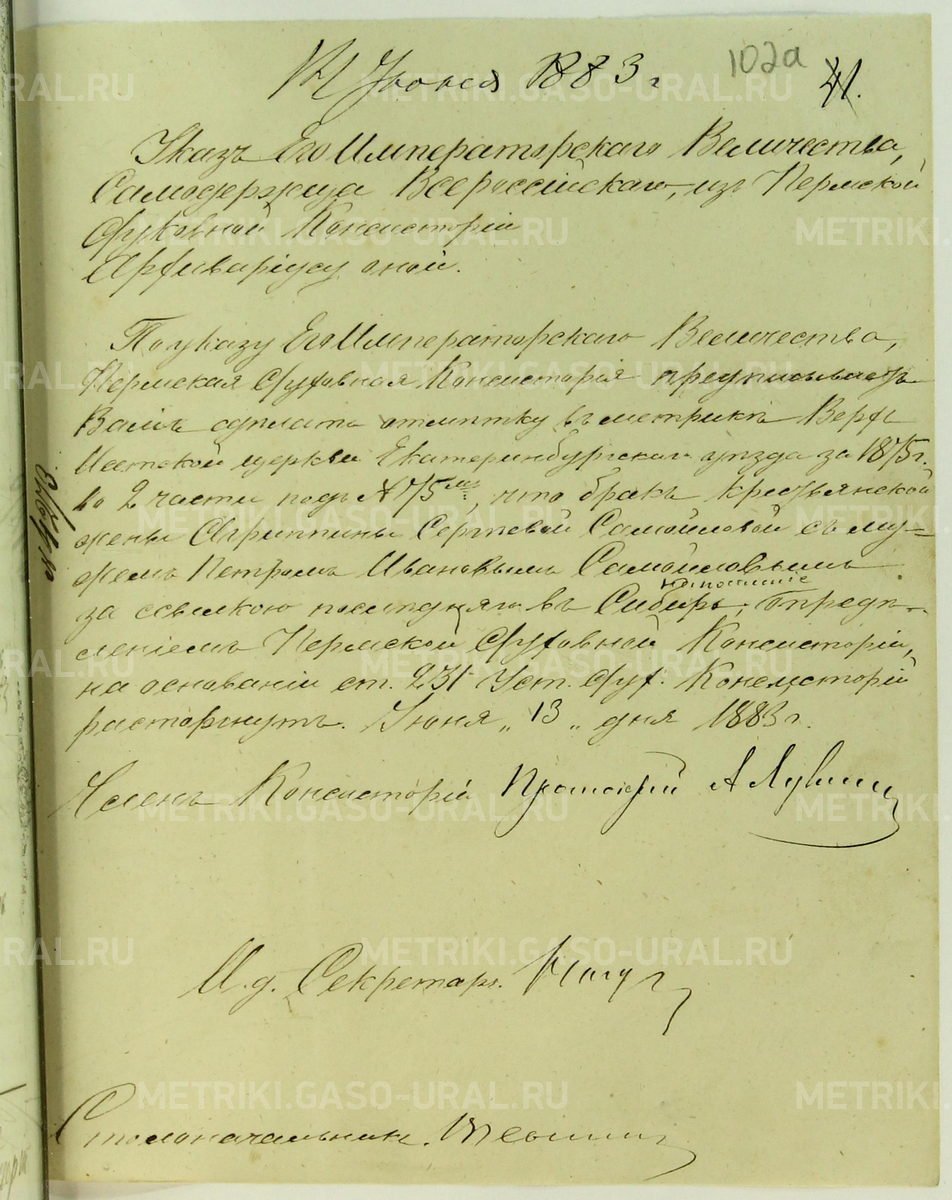 Іюня 1883 г
102а
41.
Указъ Его Императорскаго Величества,
Самодержца Всероссійскаго, изъ Пермской
Духовной Консисторіи
Архиваріусу оной.
По указу Его Императорскаго Величества,
Пермская Духовная Консисторія предписываетъ
Вамъ сдѣлать отмѣтку въ метрикѣ Верхъ
Исетской церкви Екатеринбургскаго уѣзда за 1875 г.
во 2 части подъ № 75 мъ, что бракъ крестьянской
жены Агриппины Сергѣевой Самойловой съ му=
жемъ Петромъ Ивановымъ Самойловымъ
за ссылкою послѣдняго въ Сибирь, Опредѣ-
леніемъ Пермской Духовной Консисторіи,
на основаніи ст. 231 Уст. Дух. Консисторій
расторгнутъ. Іюня „ 13 „ дня 1883 г.
Членъ Консисторіи Протоіерей А
И. д. Секретаря
Столоначальникъ
METRIKI.GASO-URAL.RU